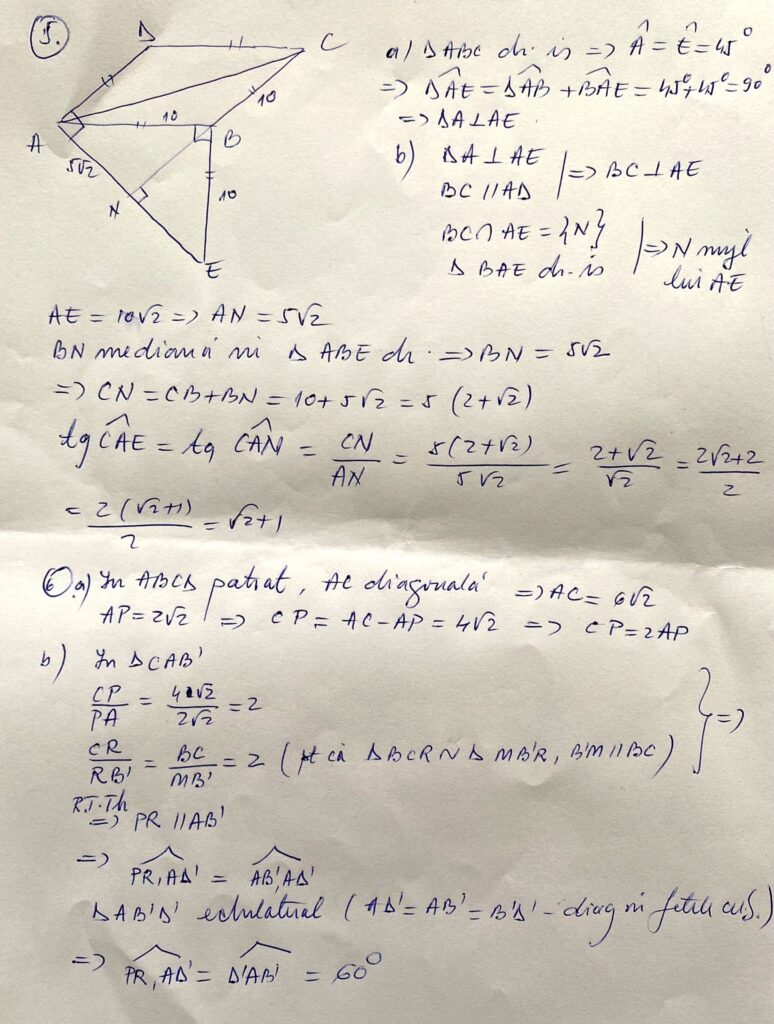 5.
D
C
A
B
N
E
10
10
10
5√2
a) Δ ABE dr. is => Â = Ê = 45°
=> DAE = DAB + BAE = 45°+45° = 90°
=> DA⊥AE.
b) DA⊥AE
BC // AD
=> BC⊥AE
BC∩AE = {N}
Δ BAE dr. is
=> N mijl
lui AE
AE = 10√2 => AN = 5√2
BN mediană în Δ ABE dr. => BN = 5√2
=> CN = CB+BN = 10+5√2 = 5 (2+√2)
tg CAE = tg CAN = CN/AN = 5(2+√2)/5√2 = 2+√2/√2 = 2√2+2/2
= 2(√2+1)/2 = √2+1
6 a) În ABCD patrat, AC diagonală => AC = 6√2
AP=2√2 => CP = AC-AP = 4√2 => CP=2AP
b) În ΔCAB'
CP/PA = 4√2/2√2 = 2
CR/RB' = BC/MB' = 2 (pt că ΔBCR ~ Δ MB'R, B'M // BC) } =>
R.T.Th
=> PR // AB'
=> PR, AD' = AB', AD'
ΔAB'D' echilateral (AD' = AB' = B'D' - diag în fețele cub.)
=> PR, AD' = D'AB' = 60°